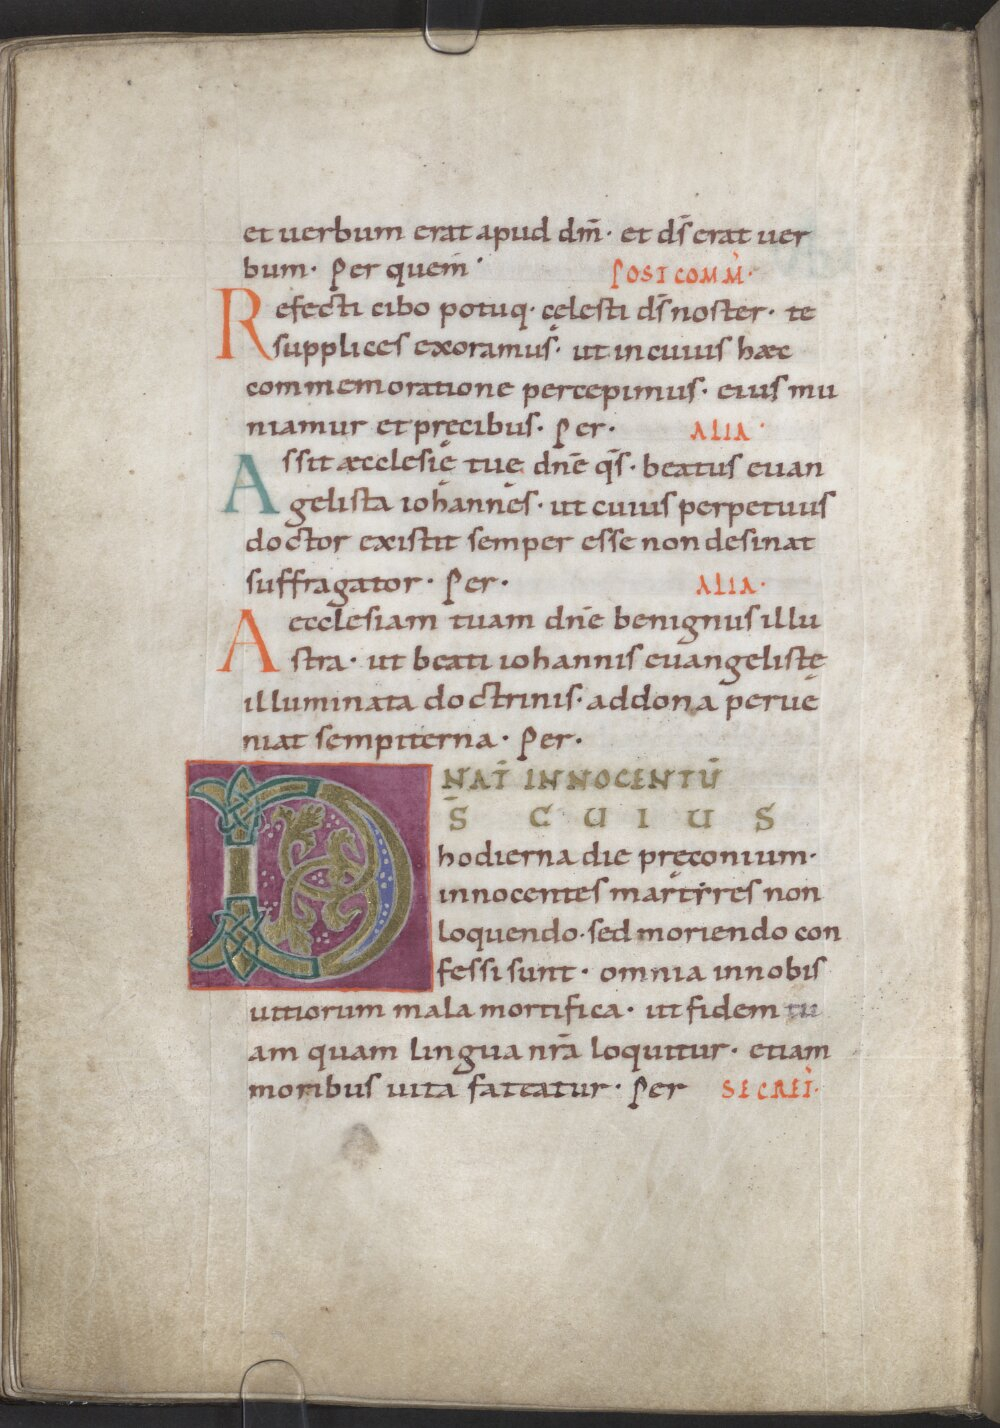 et uerbum erat apud dm̄· et ds̄ erat uer
bum· Per quem· POST COMM̄·
Refecti cibo potuq· cęlesti ds̄ noster· te
supplices exoramus· ut in cuius hæc
commemoratione percepimus· eius mu
niamur et pręcibus· Per· ALIA·
Assit æcclesię tuę dnē qs̄· beatus euan
gelista iohannęs· ut cuius perpetuus
doctor existit semper esse non desinat
suffragator· Per· ALIA·
Aecclesiam tuam dnē benignus illu
stra· ut beati iohannis euangelistę
illuminata doctrinis· ad dona perue
niat sempiterna· Per·
NAT̄ INNOCENTŪ
DS̄ CUIUS
hodierna die pręconium·
innocentes martyres non
loquendo· sed moriendo con
fessi sunt· omnia in nobis
uitiorum mala mortifica· ut fidem tu
am quam lingua nr̄a loquitur· etiam
moribus uita fateatur· Per SECRET̄·